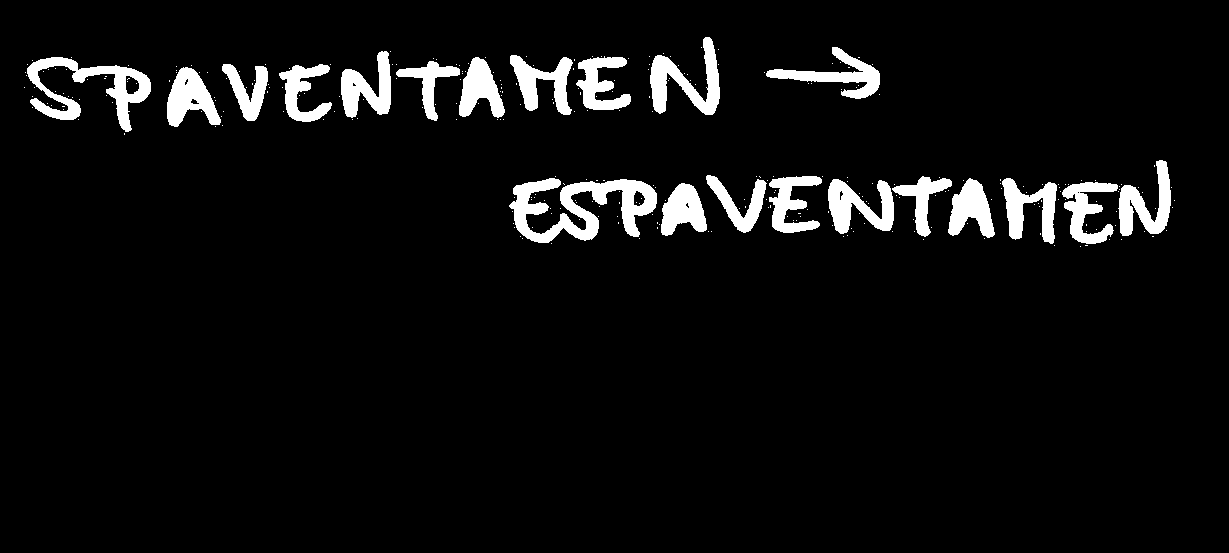 SPAVENTAMEN →
ESPAVENTAMEN